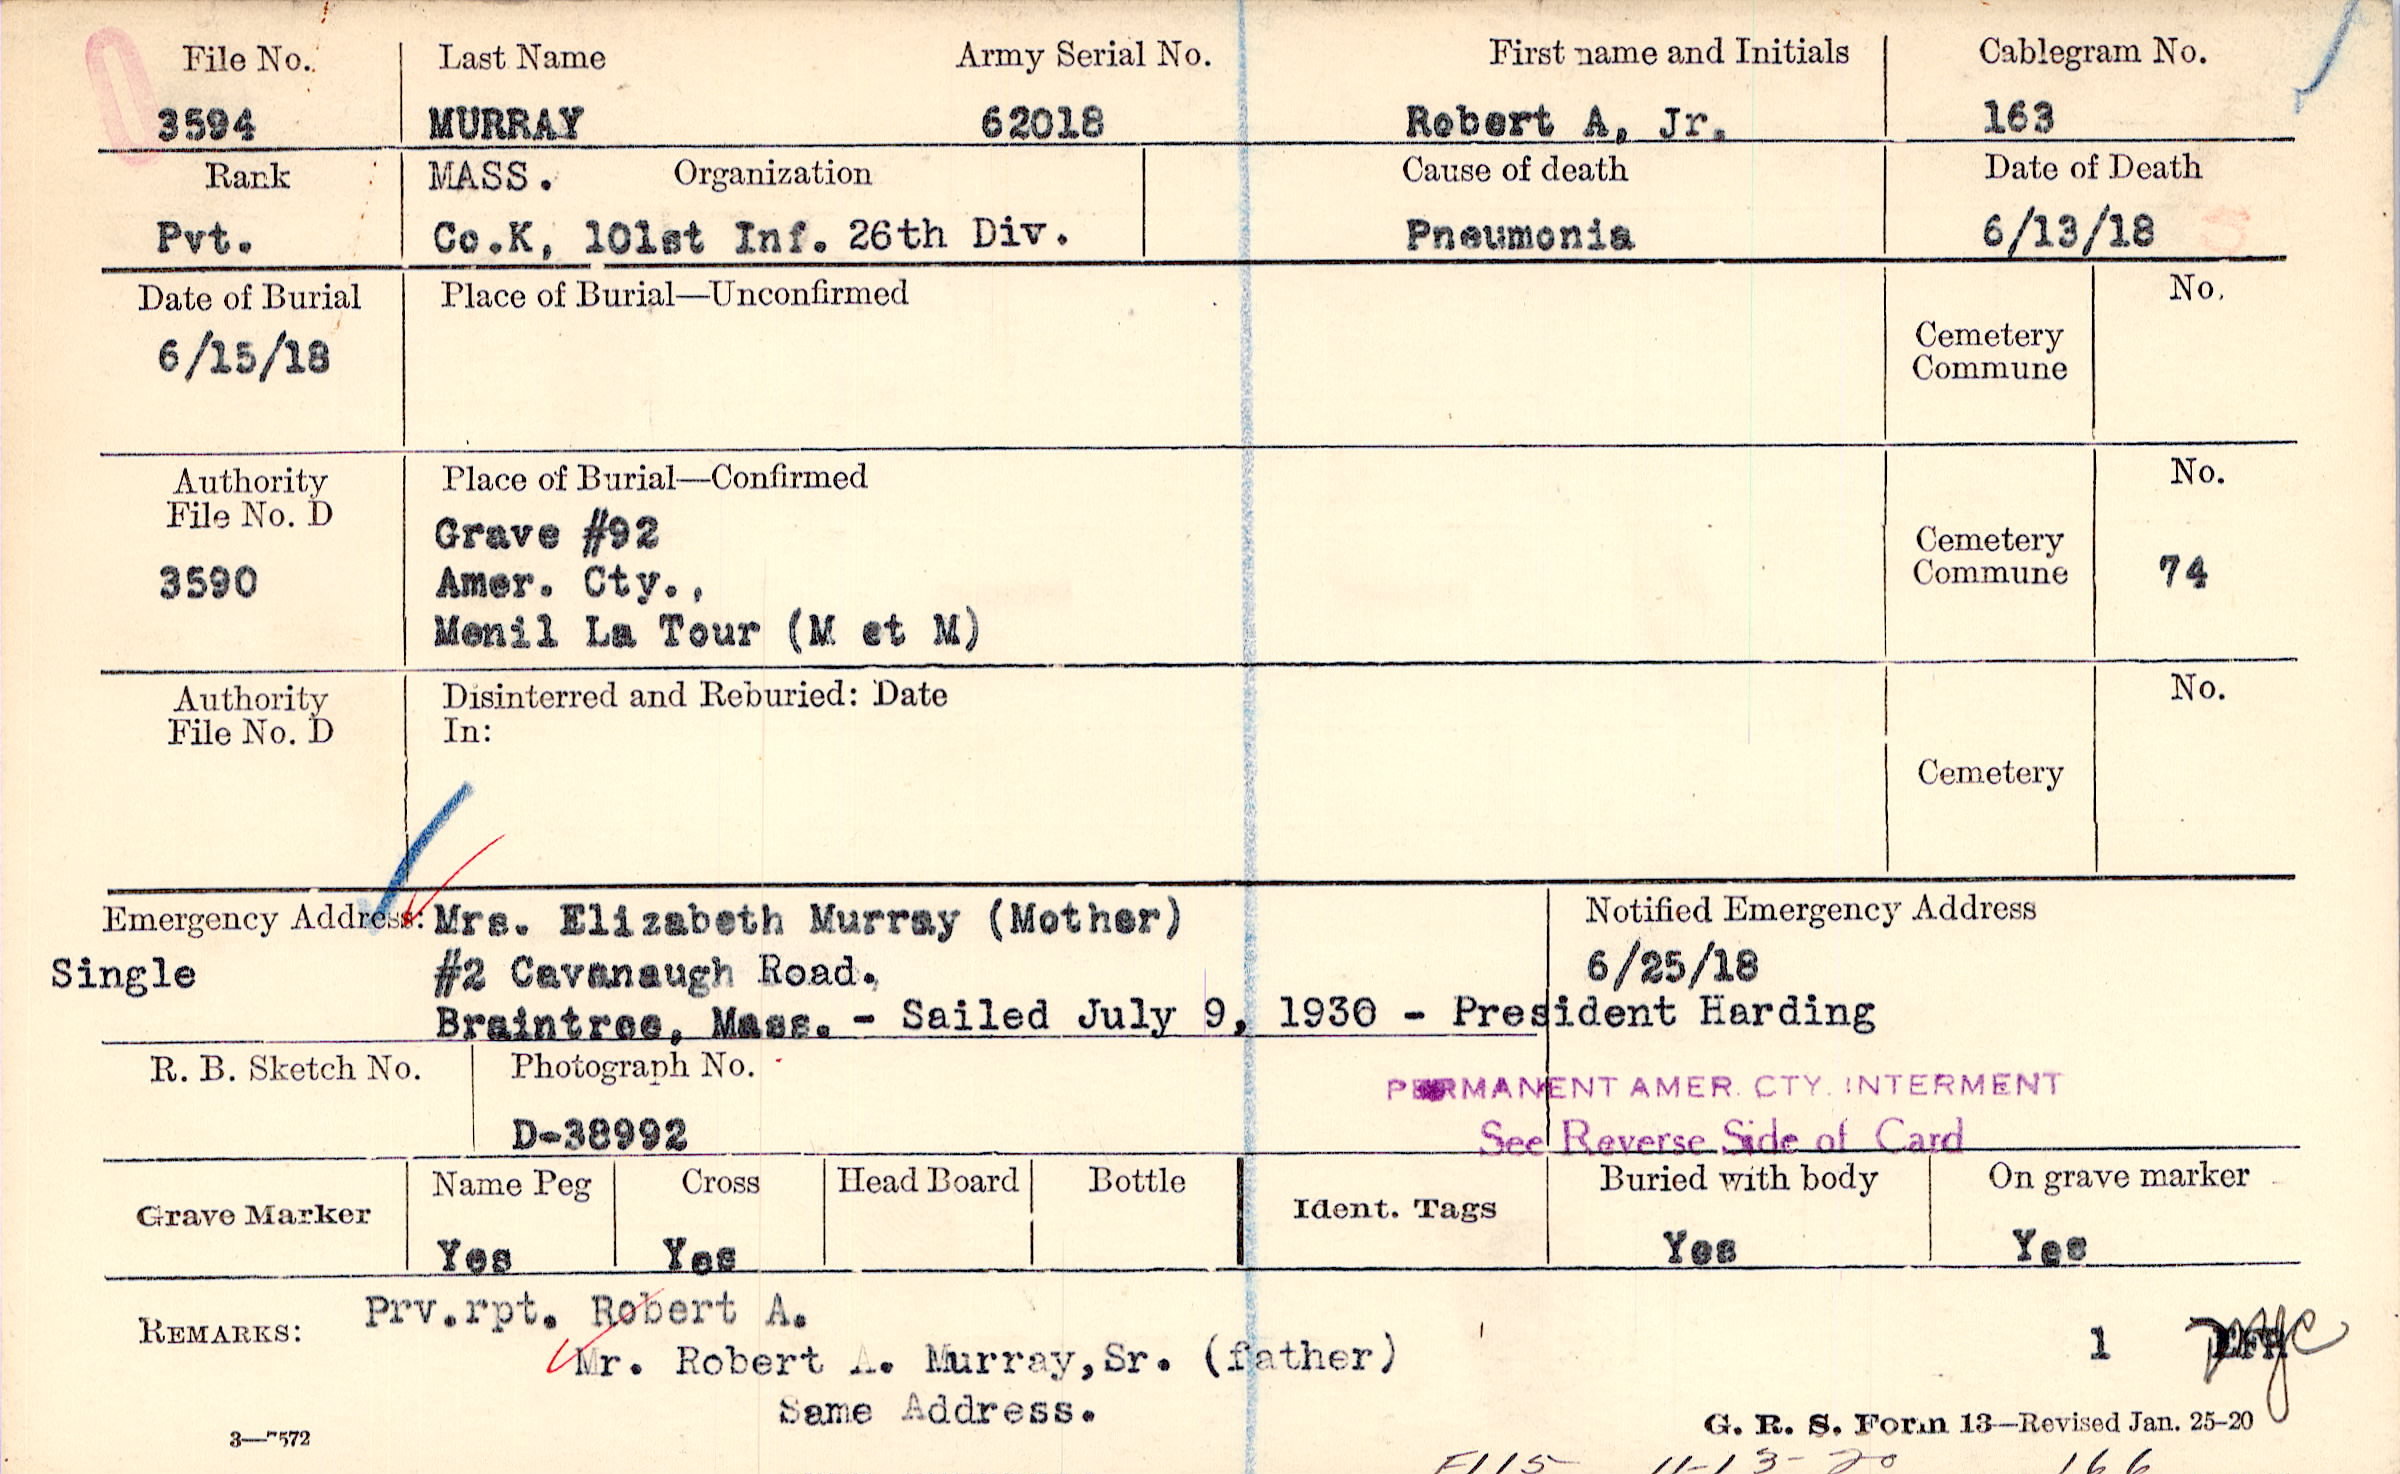 File No. Last Name Army Serial No. First name and Initials Cablegram No.
3594 MURRAY 62018 Robert A, Jr. 163
Rank MASS. Organization Cause of death Date of Death
Pvt. Co.K, 101st Inf. 26th Div. Pneumonia 6/13/18
Date of Burial Place of Burial—Unconfirmed No.
6/15/18
Cemetery
Commune
Authority Place of Burial—Confirmed No.
File No. D
Grave #92
Cemetery
3590 Amer. Cty., Commune 74
Menil La Tour (M et M)
Authority Disinterred and Reburied: Date No.
File No. D In:
Cemetery
Emergency Address: Mrs. Elizabeth Murray (Mother) Notified Emergency Address
Single #2 Cavanaugh Road. 6/25/18
Braintree, Mass. - Sailed July 9, 1930 - President Harding
R. B. Sketch No. Photograph No.
PERMANENT AMER. CTY. INTERMENT
D-38992 See Reverse Side of Card
Name Peg Cross Head Board Bottle Buried with body On grave marker
Grave Marker Ident. Tags
Yes Yes Yes Yes
REMARKS: Prv.rpt. Robert A.
Mr. Robert A. Murray,Sr. (father) 1
Same Address.
3—7572 G. R. S. Form 13—Revised Jan. 25-20
11-13-20 166